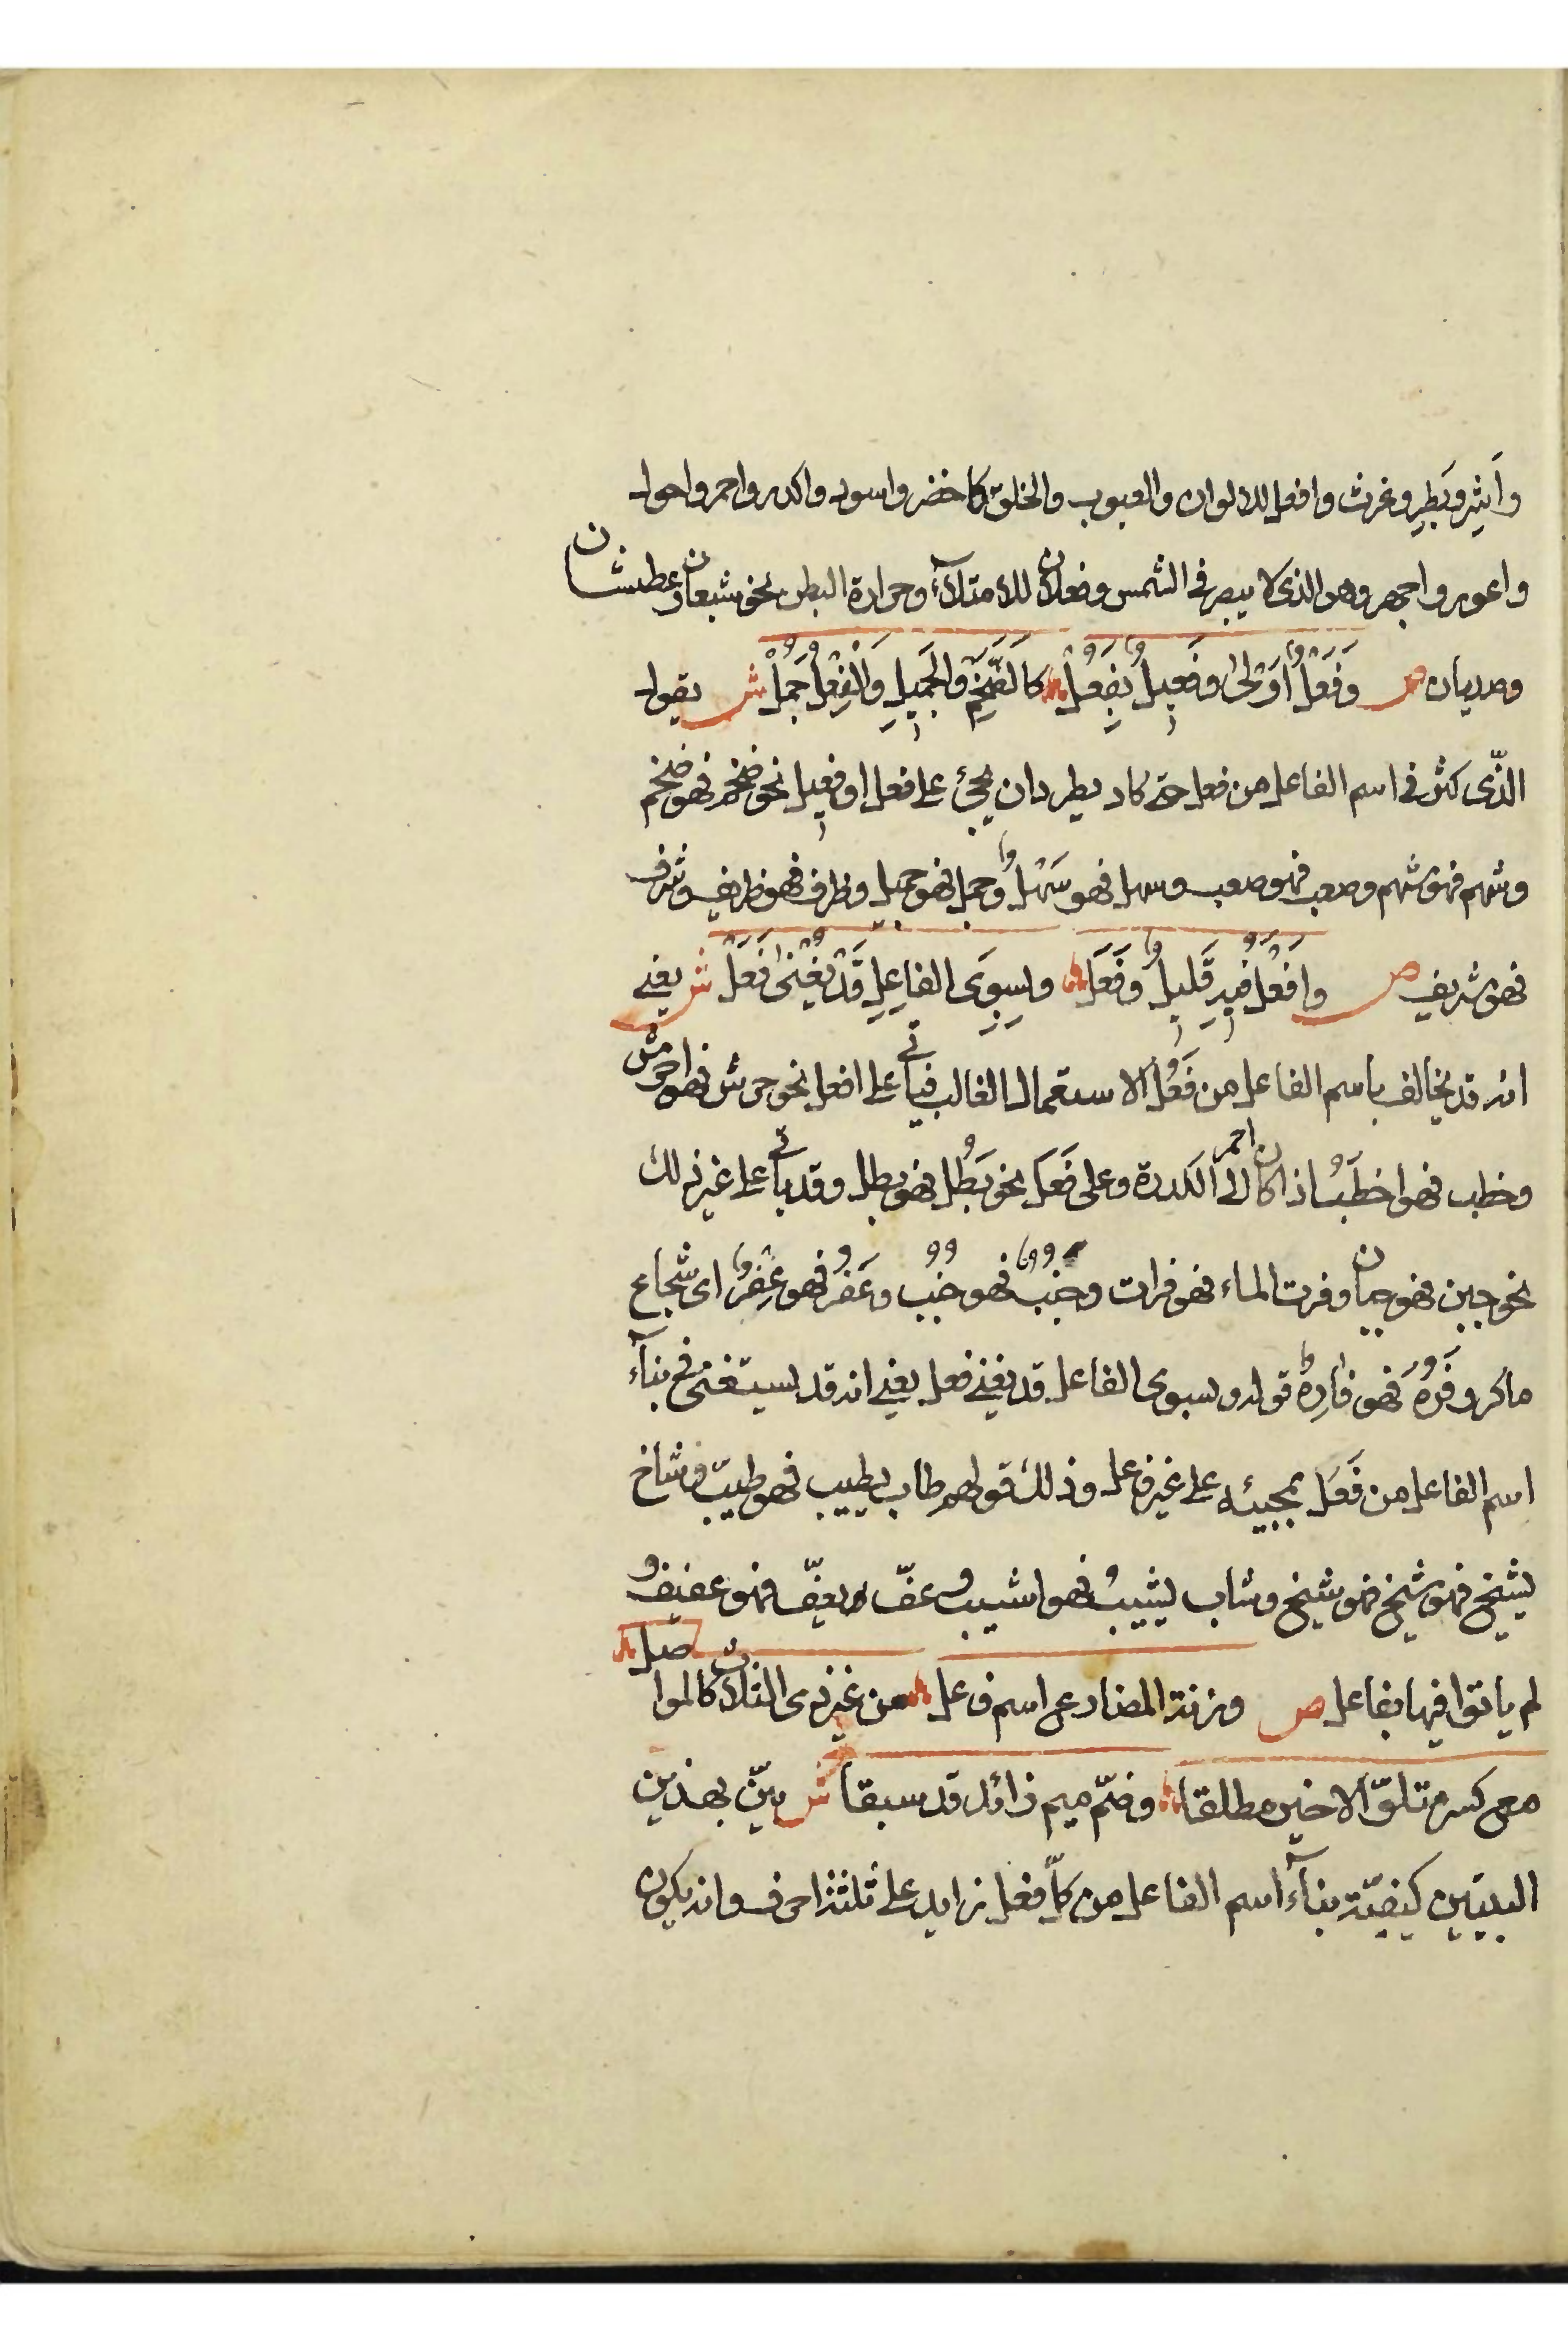 واَشِر وبَطِر وغرث وافعل للالوان والعيوب والخلق كاخضر واسود واكدر واحمر واحول
واعور واجهر وهو الذى لا يبصر فى الشمس وفعلان للامتلآء وحرارة البطن نحو شبعان وعطشان
وصديان ص وَفَعْلٌ اَوْلىٰ وفَعِيلٌ بِفَعُلْ كالضَّخْمِ والجَمِيلِ وَالْفِعْلُ جَمُلْ ش يقول
الذّى كثر فى اسم الفاعل من فعل حتى كاد يطرد ان يجئ على فعل او فعيل نحو ضخم فهو ضخم
وشهم فهو شهم وصعب فهو صعب وسهل فهو سَهْلٌ وجمل فهو جميل وظرف فهو ظريف وشرف
فهو شريف ص وافْعَلٌ فيهِ قَليلٌ وفَعَلْ وبِسِوَى الفاعِلِ قَدْ يُغْنىٰ فَعَلْ ش يعنى
انه قد يخالف باسم الفاعل من فَعُلَ الاستعمال الغالب فيأتى على افعل نحو حرش فهو احرش
وخطب فهو اخطَبُ اذا كان احمر الى الكدرة وعلى فَعَل نحو بَطُل فهو بطل وقد يأتى على غير ذلك
نحو جبن فهو جبان وفرت الماء فهو فرات وجَنُبَ فهو جُنُبٌ وعَفُرَ فهو عِفْرٌ اى شجاع
ماكر وفَرُهَ فهو فارِهٌ قوله وبسوى الفاعل قد يغنى فعل يعنى انه قد يستغنى فى بنآء
اسم الفاعل من فَعَلَ بمجيئه على غير فاعل وذلك قولهم طاب يطيب فهو طيّب وشاخ
يشيخ فهو شيخ فهو شيخ وشاب يشيبُ فهو اشيب وعفّ يعفّ فهو عفيفٌ
لم ياتوا فيها بفاعل ص وزنة المضارع اسم فاعل من غير ذى الثلاث كالمواصل
مع كسر متلوّ الاخير مطلقا وضمّ ميم زائد قد سبقا ش بيّن بهذين
البيتين كيفيّة بنآء اسم الفاعل من كلّ فعل زايد على ثلثة احرف وانه يكون